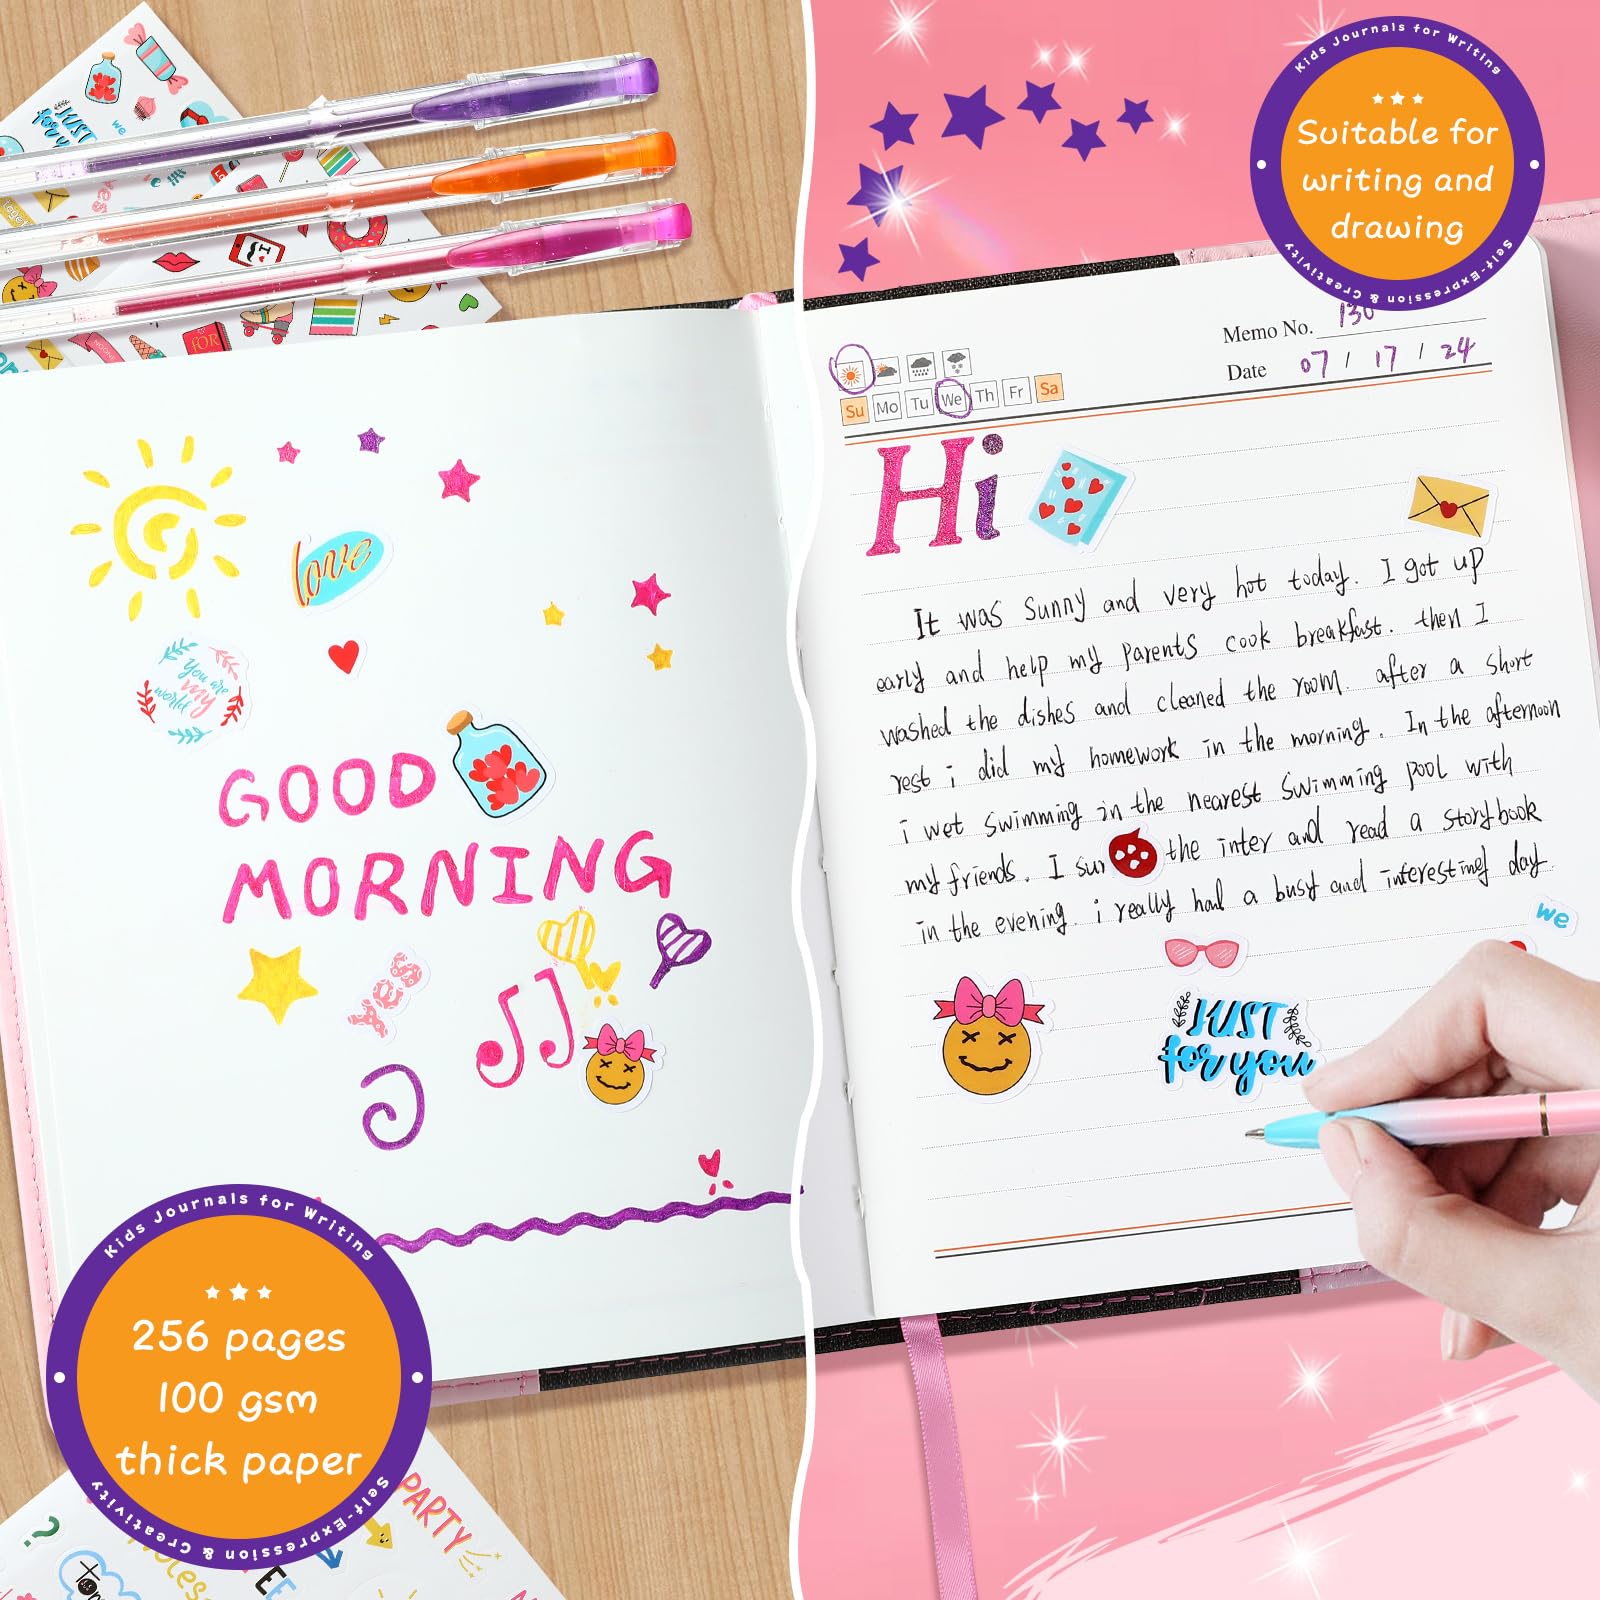 Kids Journals for Writing
Suitable for
writing and
drawing
Self-Expression & Creativity
JUST
for you
we
Memo No. 130
Date 07 / 17 / 24
Su Mo Tu We Th Fr Sa
Hi
love
You are
my
world
GOOD
MORNING
It was sunny and very hot today. I got up
early and help my parents cook breakfast. then I
washed the dishes and cleaned the room. after a short
rest i did my homework in the morning. In the afternoon
i wet swimming in the nearest swimming pool with
my friends. I sur the inter and read a storybook
in the evening. i really had a busy and interesting day.
we
JUST
for you
Kids Journals for Writing
256 pages
100 gsm
thick paper
Self-Expression & Creativity
PARTY
?